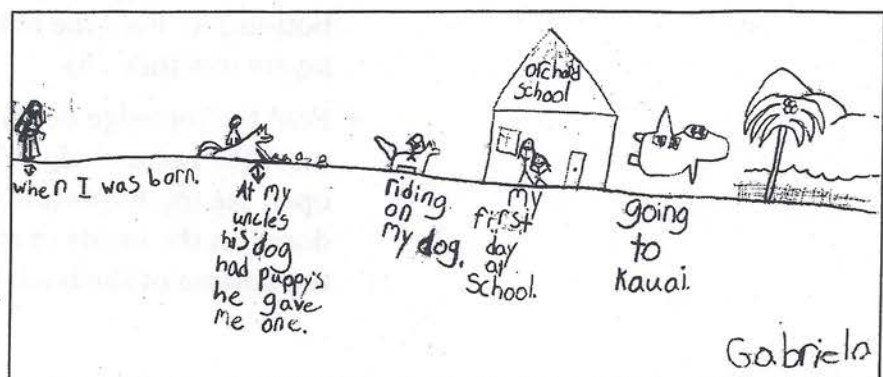 orchard
school
when I was born.
At my
uncle's
his dog
had puppy's
he gave
me one.
riding
on
my dog.
my
first
day
at
School.
going
to
Kauai.
Gabriela